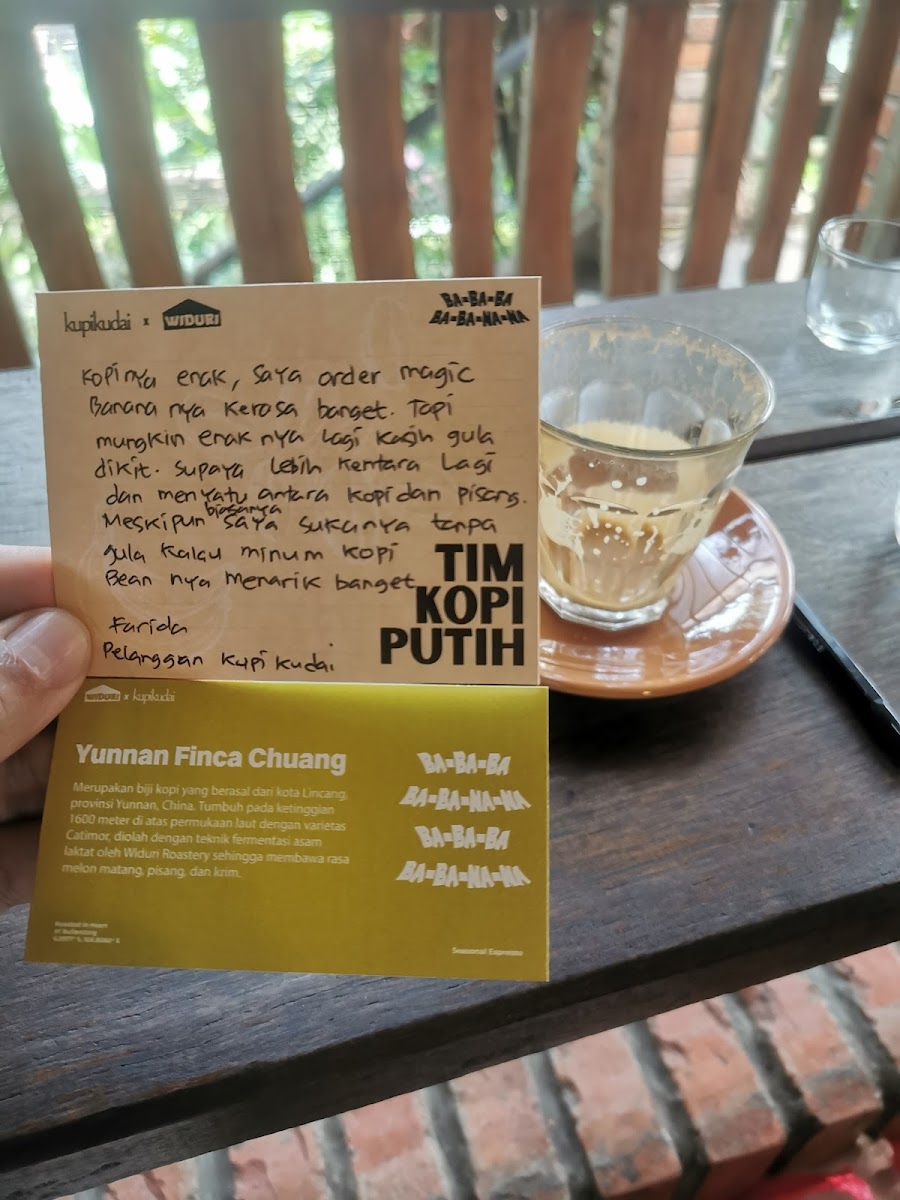 kupikudai x WIDURI
BA-BA-BA
BA-BA-NA-NA
Kopinya enak, saya order magic
Banana nya kerasa banget. Tapi
mungkin enak nya lagi kasih gula
dikit. supaya lebih kentara lagi
dan menyatu antara kopi dan pisang.
Meskipun biasanya saya sukanya tanpa
gula kalau minum kopi
Bean nya menarik banget
TIM
KOPI
PUTIH
Farida
Pelanggan kupi kudai
WIDURI x kupikudai
Yunnan Finca Chuang
Merupakan biji kopi yang berasal dari kota Lincang,
provinsi Yunnan, China. Tumbuh pada ketinggian
1600 meter di atas permukaan laut dengan varietas
Catimor, diolah dengan teknik fermentasi asam
laktat oleh Widuri Roastery sehingga membawa rasa
melon matang, pisang, dan krim.
BA-BA-BA
BA-BA-NA-NA
BA-BA-BA
BA-BA-NA-NA
Roasted in Heart
of
Seasonal Espresso